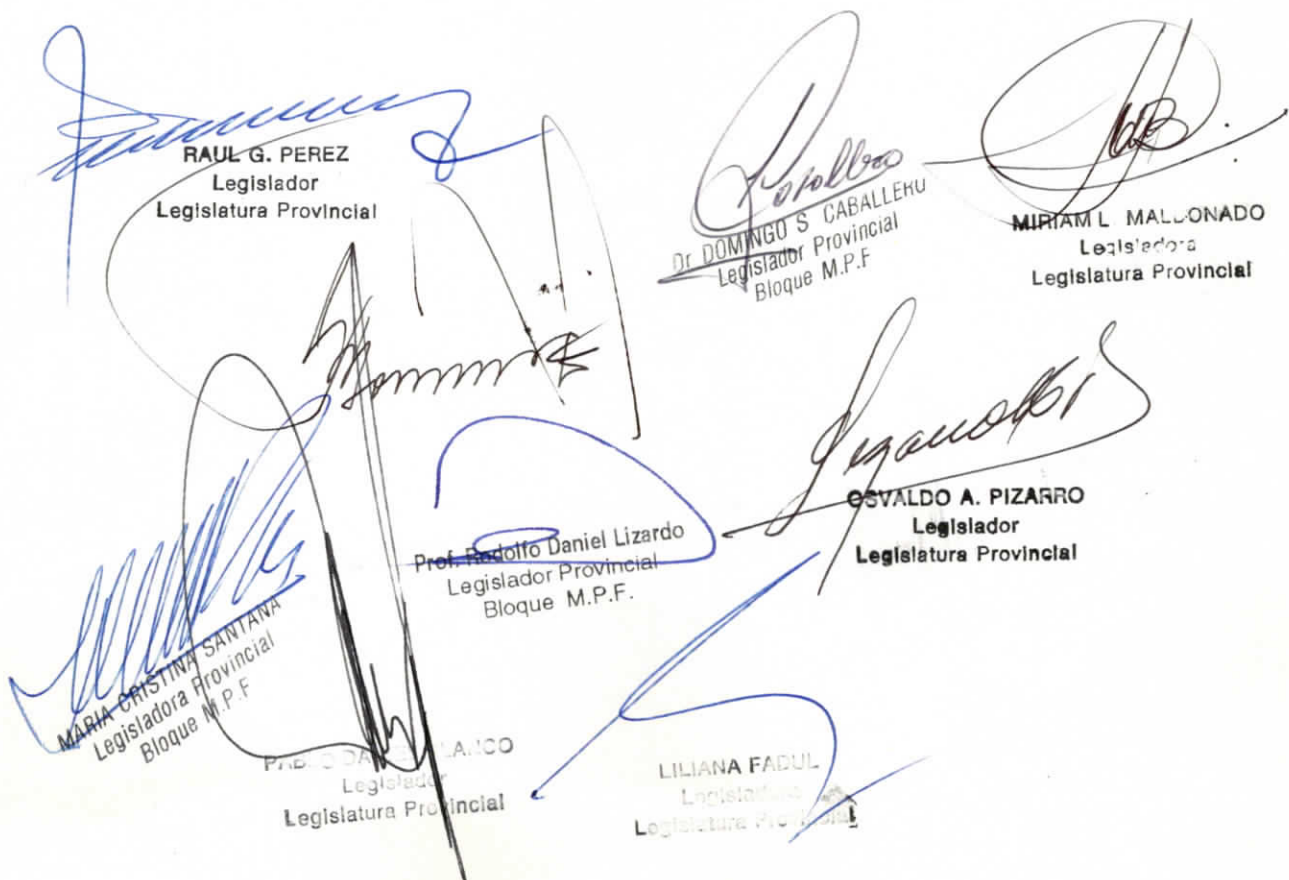 RAUL G. PEREZ
Legislador
Legislatura Provincial
Dr. DOMINGO S. CABALLERO
Legislador Provincial
Bloque M.P.F
MIRIAM L. MALDONADO
Legisladora
Legislatura Provincial
OSVALDO A. PIZARRO
Legislador
Legislatura Provincial
Prof. Rodolfo Daniel Lizardo
Legislador Provincial
Bloque M.P.F.
MARIA CRISTINA SANTANA
Legisladora Provincial
Bloque M.P.F
PABLO DANIEL BLANCO
Legislador
Legislatura Provincial
LILIANA FADUL
Legisladora
Legislatura Provincial